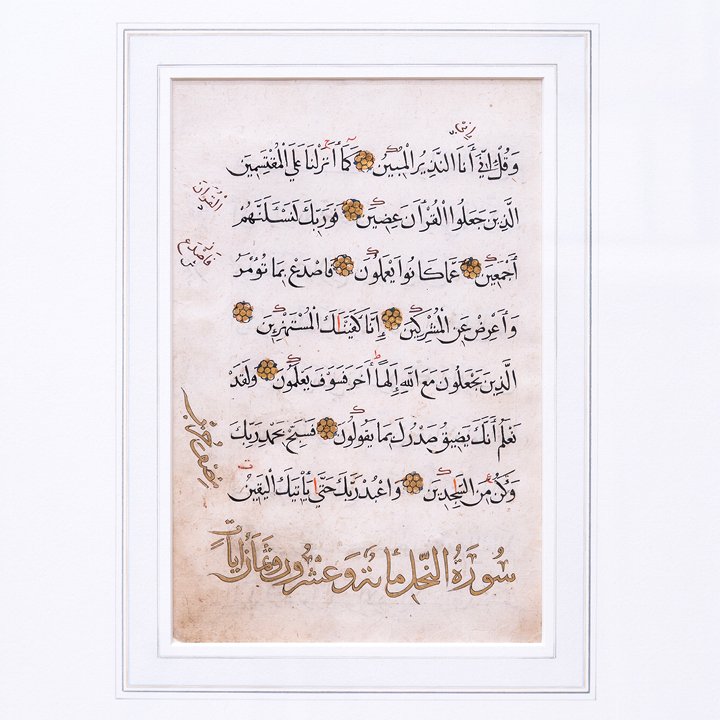 وَقُلْ إِنِّي أَنَا النَّذِيرُ الْمُبِينُ كَمَا أَنْزَلْنَا عَلَى الْمُقْتَسِمِينَ
الَّذِينَ جَعَلُوا الْقُرْآنَ عِضِينَ فَوَرَبِّكَ لَنَسْـَٔلَنَّهُمْ
أَجْمَعِينَ عَمَّا كَانُوا يَعْمَلُونَ فَاصْدَعْ بِمَا تُؤْمَرُ
وَأَعْرِضْ عَنِ الْمُشْرِكِينَ إِنَّا كَفَيْنَاكَ الْمُسْتَهْزِئِينَ
الَّذِينَ يَجْعَلُونَ مَعَ اللَّهِ إِلَهًا آخَرَ فَسَوْفَ يَعْلَمُونَ وَلَقَدْ
نَعْلَمُ أَنَّكَ يَضِيقُ صَدْرُكَ بِمَا يَقُولُونَ فَسَبِّحْ بِحَمْدِ رَبِّكَ
وَكُنْ مِنَ السَّاجِدِينَ وَاعْبُدْ رَبَّكَ حَتَّى يَأْتِيَكَ الْيَقِينُ
سُورَةُ النَّحْلِ مِائَةٌ وَعِشْرُونَ وَثَمَانُ آيَاتٍ
الْقُرَان
فَاصْدَع
نصف حزب